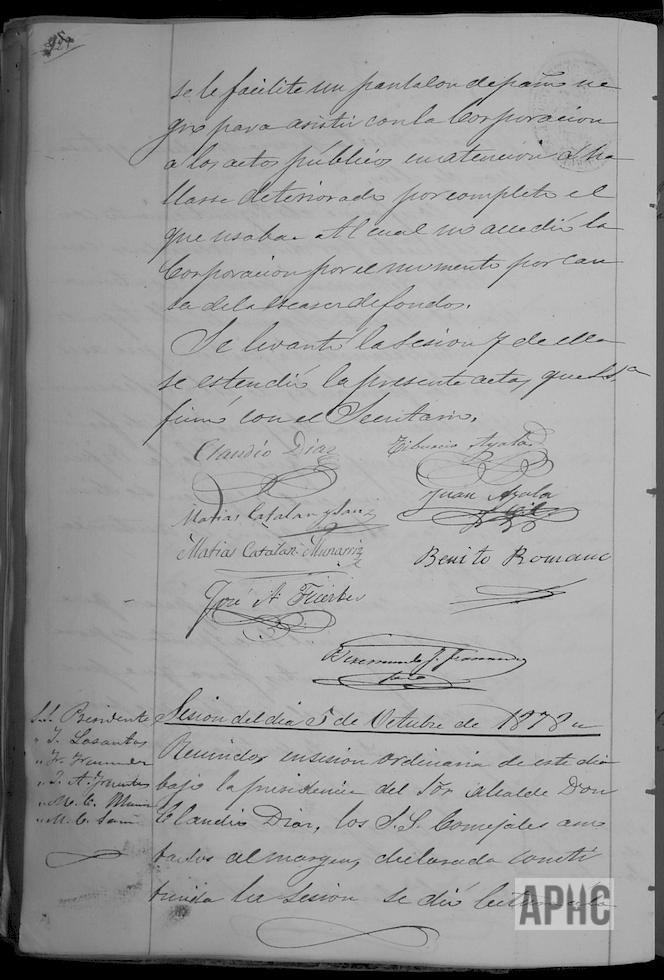 se le facilite un pantalon de paño ne
gro para asistir con la Corporacion
a los actos públicos en atencion a ha
llarse deteriorado por completo el
que usaba. Al cual no accedió la
Corporacion por el momento por cau
sa de la escasez de fondos.
Se levantó la sesion y de ella
se estendió la presente acta, que
firmo con el Secretario.
Claudio Diaz
Tiburcio Ayala
Juan Ayala
Matias Catalan y Sanz
Matias Catalan Munarriz
Benito Romano
José A. Fuertes
S.S. Presidente
Sesion del dia 5 de Octubre de 1878
" J. Losantos
Reunidos en sesion ordinaria de este dia
" J. A. Fuertes
bajo la presidencia del Sor Alcalde Don
" M. C. Muna
Claudio Diaz, los S.S. Concejales ano
" M. C. Sanz
tados al margen, declarada consti
tuida la sesion se dió lectura a la
APHC